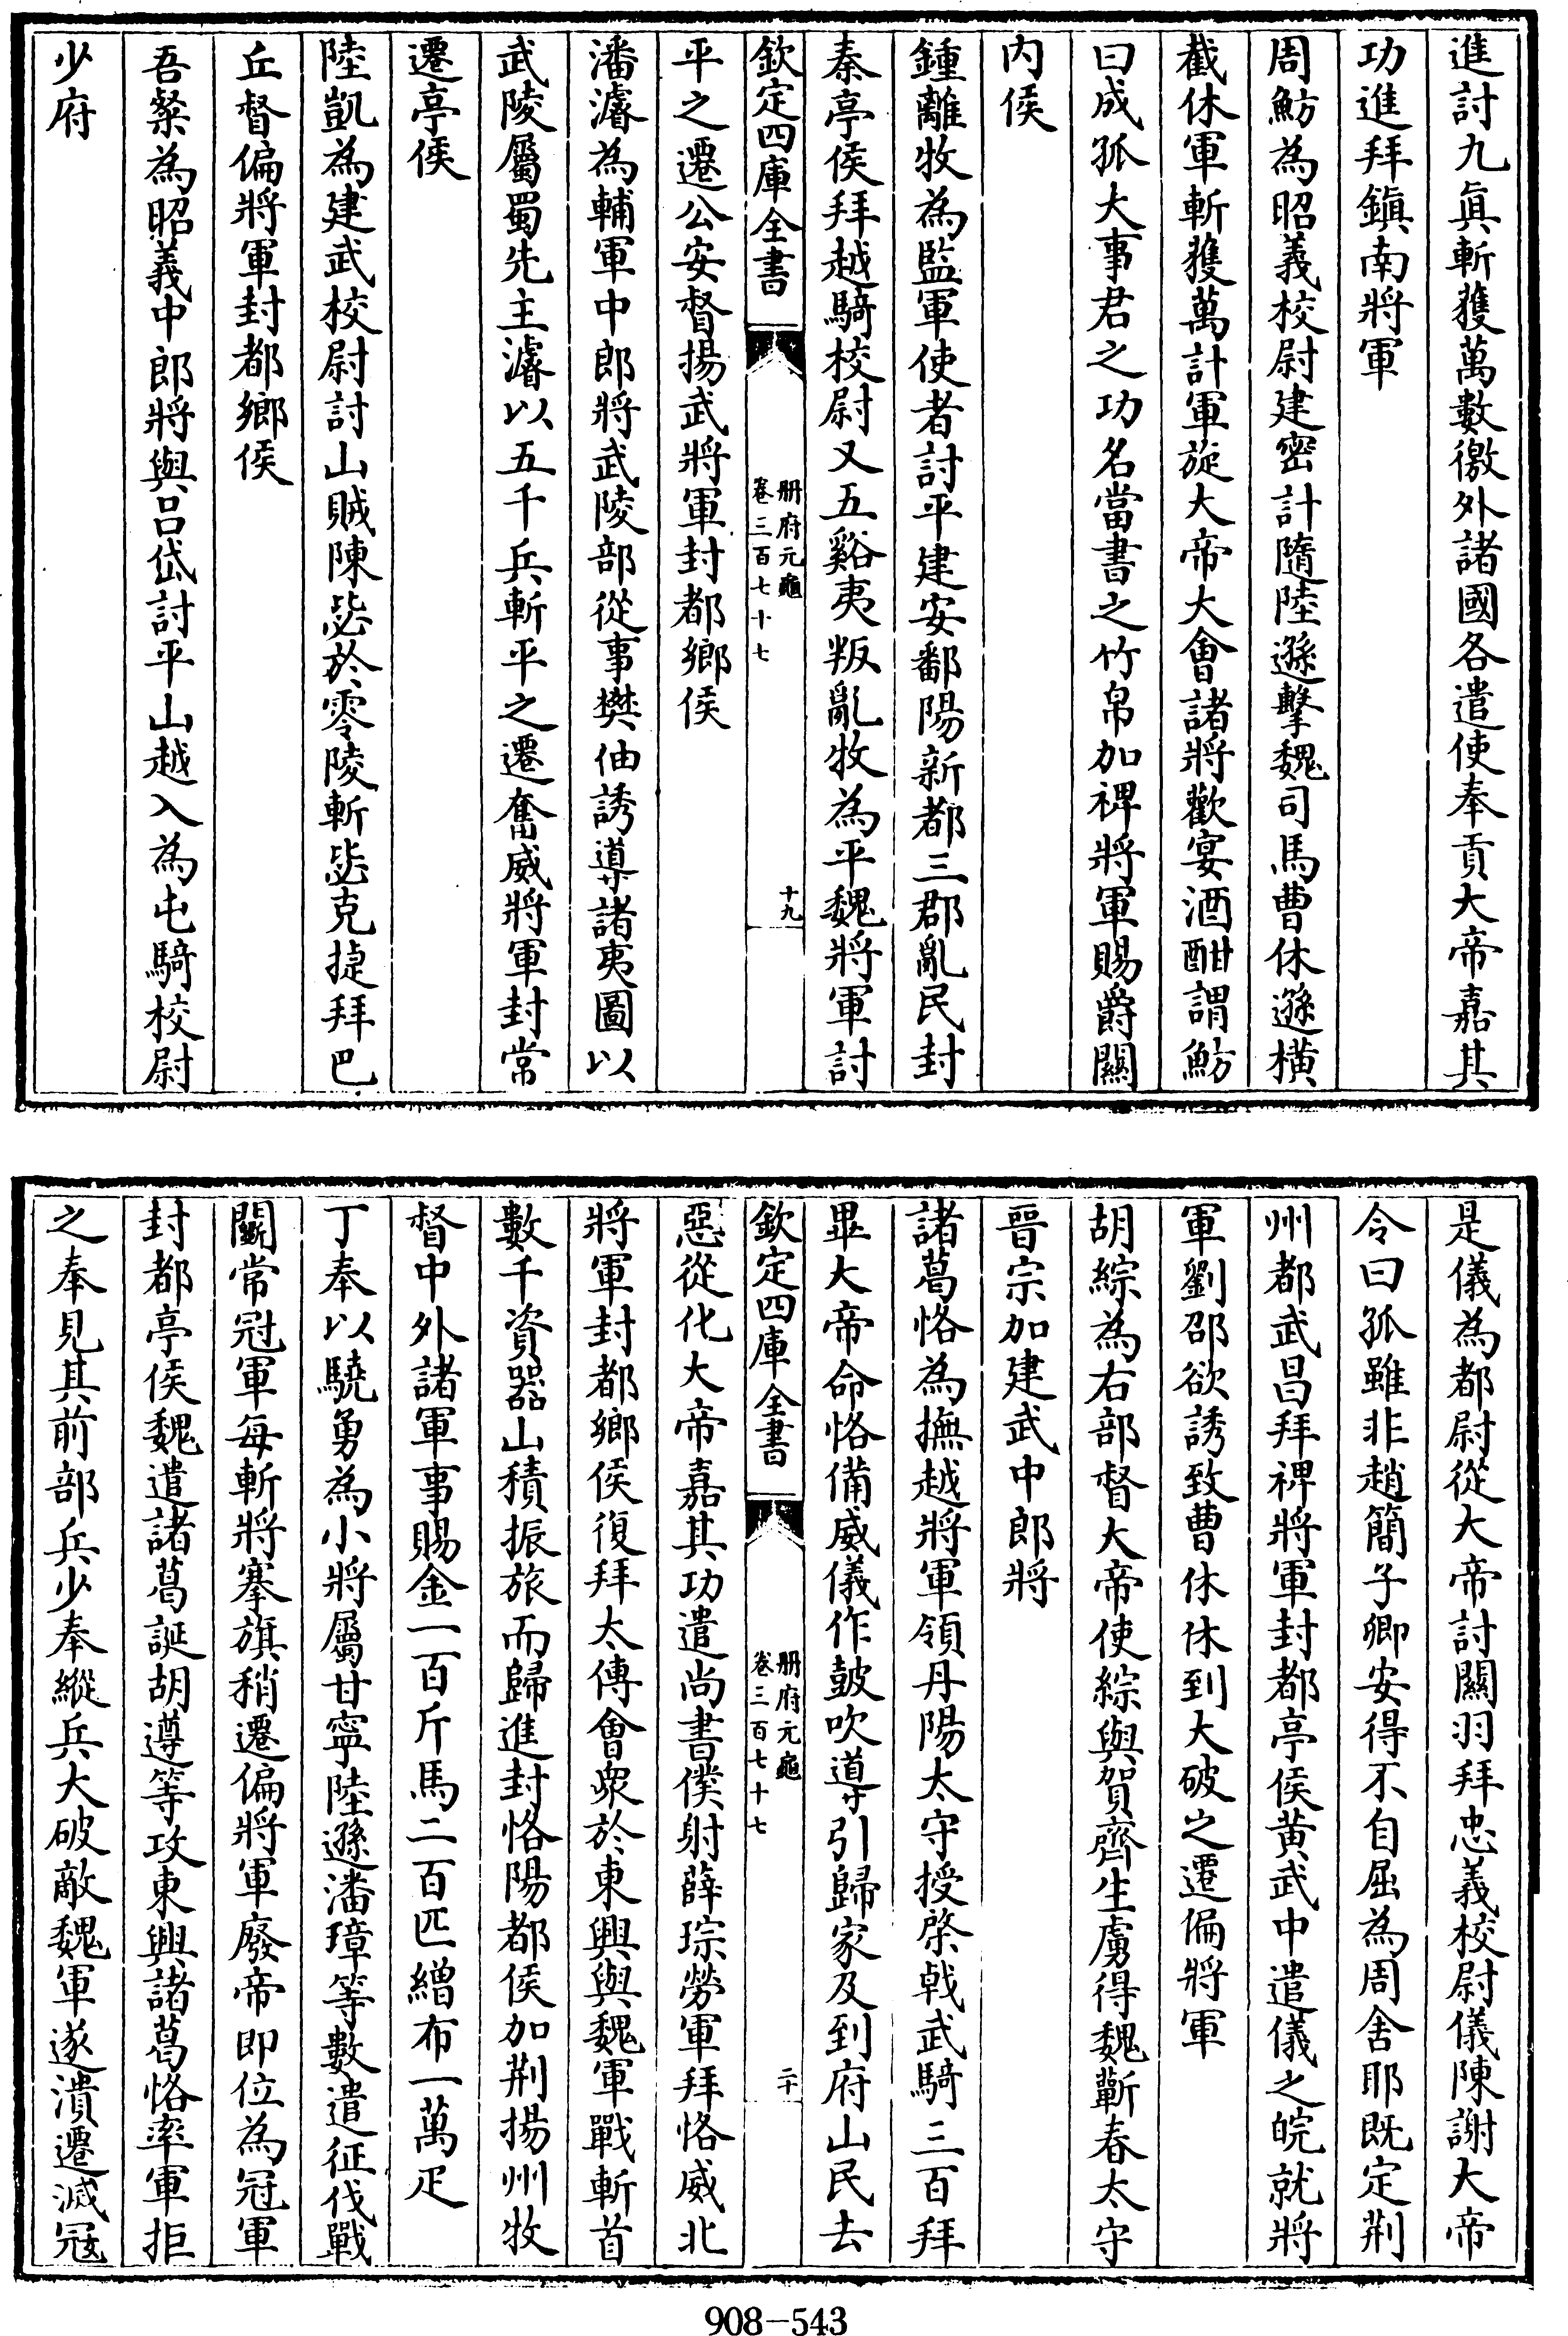 進討九真斬獲萬數徼外諸國各遣使奉貢大帝嘉其
功進拜鎮南將軍
周魴為昭義校尉建密計隨陸遜擊魏司馬曹休遜橫
截休軍斬獲萬計軍旋大帝大會諸將歡宴酒酣謂魴
曰成孤大事君之功名當書之竹帛加裨將軍賜爵關
内侯
鍾離牧為監軍使者討平建安鄱陽新都三郡亂民封
秦亭侯拜越騎校尉又五谿夷叛亂牧為平魏將軍討
欽定四庫全書
冊府元龜
卷三百七十七
十九
平之遷公安督揚武將軍封都鄉侯
潘濬為輔軍中郎將武陵部從事樊伷誘導諸夷圖以
武陵屬蜀先主濬以五千兵斬平之遷奮威將軍封常
遷亭侯
陸凱為建武校尉討山賊陳毖於零陵斬毖克捷拜巴
丘督偏將軍封都鄉侯
吾粲為昭義中郎將與吕岱討平山越入為屯騎校尉
少府
是儀為都尉從大帝討關羽拜忠義校尉儀陳謝大帝
令曰孤雖非趙簡子卿安得不自屈為周舍耶既定荆
州都武昌拜裨將軍封都亭侯黄武中遣儀之皖就將
軍劉邵欲誘致曹休休到大破之遷偏將軍
胡綜為右部督大帝使綜與賀齊生虜得魏蘄春太守
晉宗加建武中郎將
諸葛恪為撫越將軍領丹陽太守授棨戟武騎三百拜
畢大帝命恪備威儀作鼓吹導引歸家及到府山民去
欽定四庫全書
冊府元龜
卷三百七十七
二十
惡從化大帝嘉其功遣尚書僕射薛琮勞軍拜恪威北
將軍封都鄉侯復拜太傅會衆於東興與魏軍戰斬首
數千資器山積振旅而歸進封恪陽都侯加荆揚州牧
督中外諸軍事賜金一百斤馬二百匹繒布一萬疋
丁奉以驍勇為小將屬甘寧陸遜潘璋等數遣征伐戰
鬭常冠軍每斬將搴旗稍遷偏將軍廢帝即位為冠軍
封都亭侯魏遣諸葛誕胡遵等攻東興諸葛恪率軍拒
之奉見其前部兵少奉縱兵大破敵魏軍遂潰遷滅冦
908-543